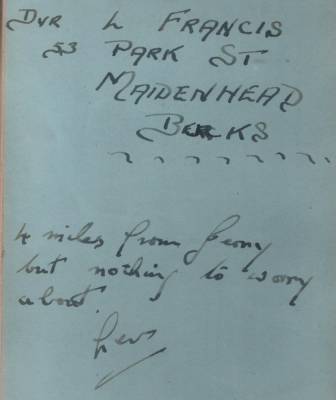 DVR L FRANCIS
53 PARK ST
MAIDENHEAD
BERKS
4 miles from Jerry
but nothing to worry
about.
Lew